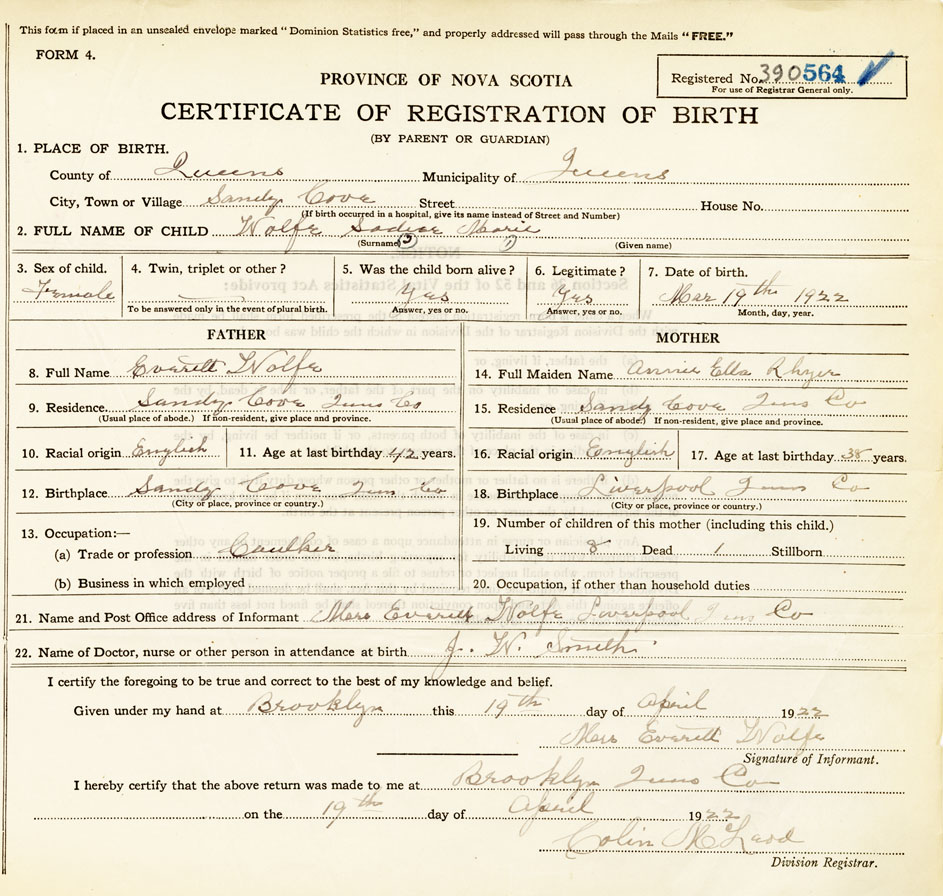 This form if placed in an unsealed envelope marked "Dominion Statistics free," and properly addressed will pass through the Mails "FREE."
FORM 4.
Registered No. 390564
For use of Registrar General only.
PROVINCE OF NOVA SCOTIA
CERTIFICATE OF REGISTRATION OF BIRTH
(BY PARENT OR GUARDIAN)
1. PLACE OF BIRTH.
County of Queens Municipality of Queens
City, Town or Village Sandy Cove Street House No.
(If birth occurred in a hospital, give its name instead of Street and Number)
2. FULL NAME OF CHILD Wolfe Sadie Marie
(Surname) (Given name)
3. Sex of child. 4. Twin, triplet or other? 5. Was the child born alive? 6. Legitimate? 7. Date of birth.
Female Yes Yes Mar 19th 1922
To be answered only in the event of plural birth. Answer, yes or no. Answer, yes or no. Month, day, year.
FATHER
8. Full Name Everett Wolfe
9. Residence. Sandy Cove Quns Co
(Usual place of abode.) If non-resident, give place and province.
10. Racial origin English 11. Age at last birthday 42 years.
12. Birthplace Sandy Cove Quns Co
(City or place, province or country.)
13. Occupation:—
(a) Trade or profession Caulker
(b) Business in which employed
MOTHER
14. Full Maiden Name Annie Ella Rhyer
15. Residence Sandy Cove Quns Co
(Usual place of abode.) If non-resident, give place and province.
16. Racial origin English 17. Age at last birthday 38 years.
18. Birthplace Liverpool Quns Co
(City or place, province or country.)
19. Number of children of this mother (including this child.)
Living 8 Dead 1 Stillborn
20. Occupation, if other than household duties
21. Name and Post Office address of Informant Mrs Everett Wolfe Liverpool Quns Co
22. Name of Doctor, nurse or other person in attendance at birth J. W. Smith
I certify the foregoing to be true and correct to the best of my knowledge and belief.
Given under my hand at Brooklyn this 19th day of April 1922
Mrs Everett Wolfe
Signature of Informant.
I hereby certify that the above return was made to me at Brooklyn Quns Co
on the 19th day of April 1922
Colin McLeod
Division Registrar.